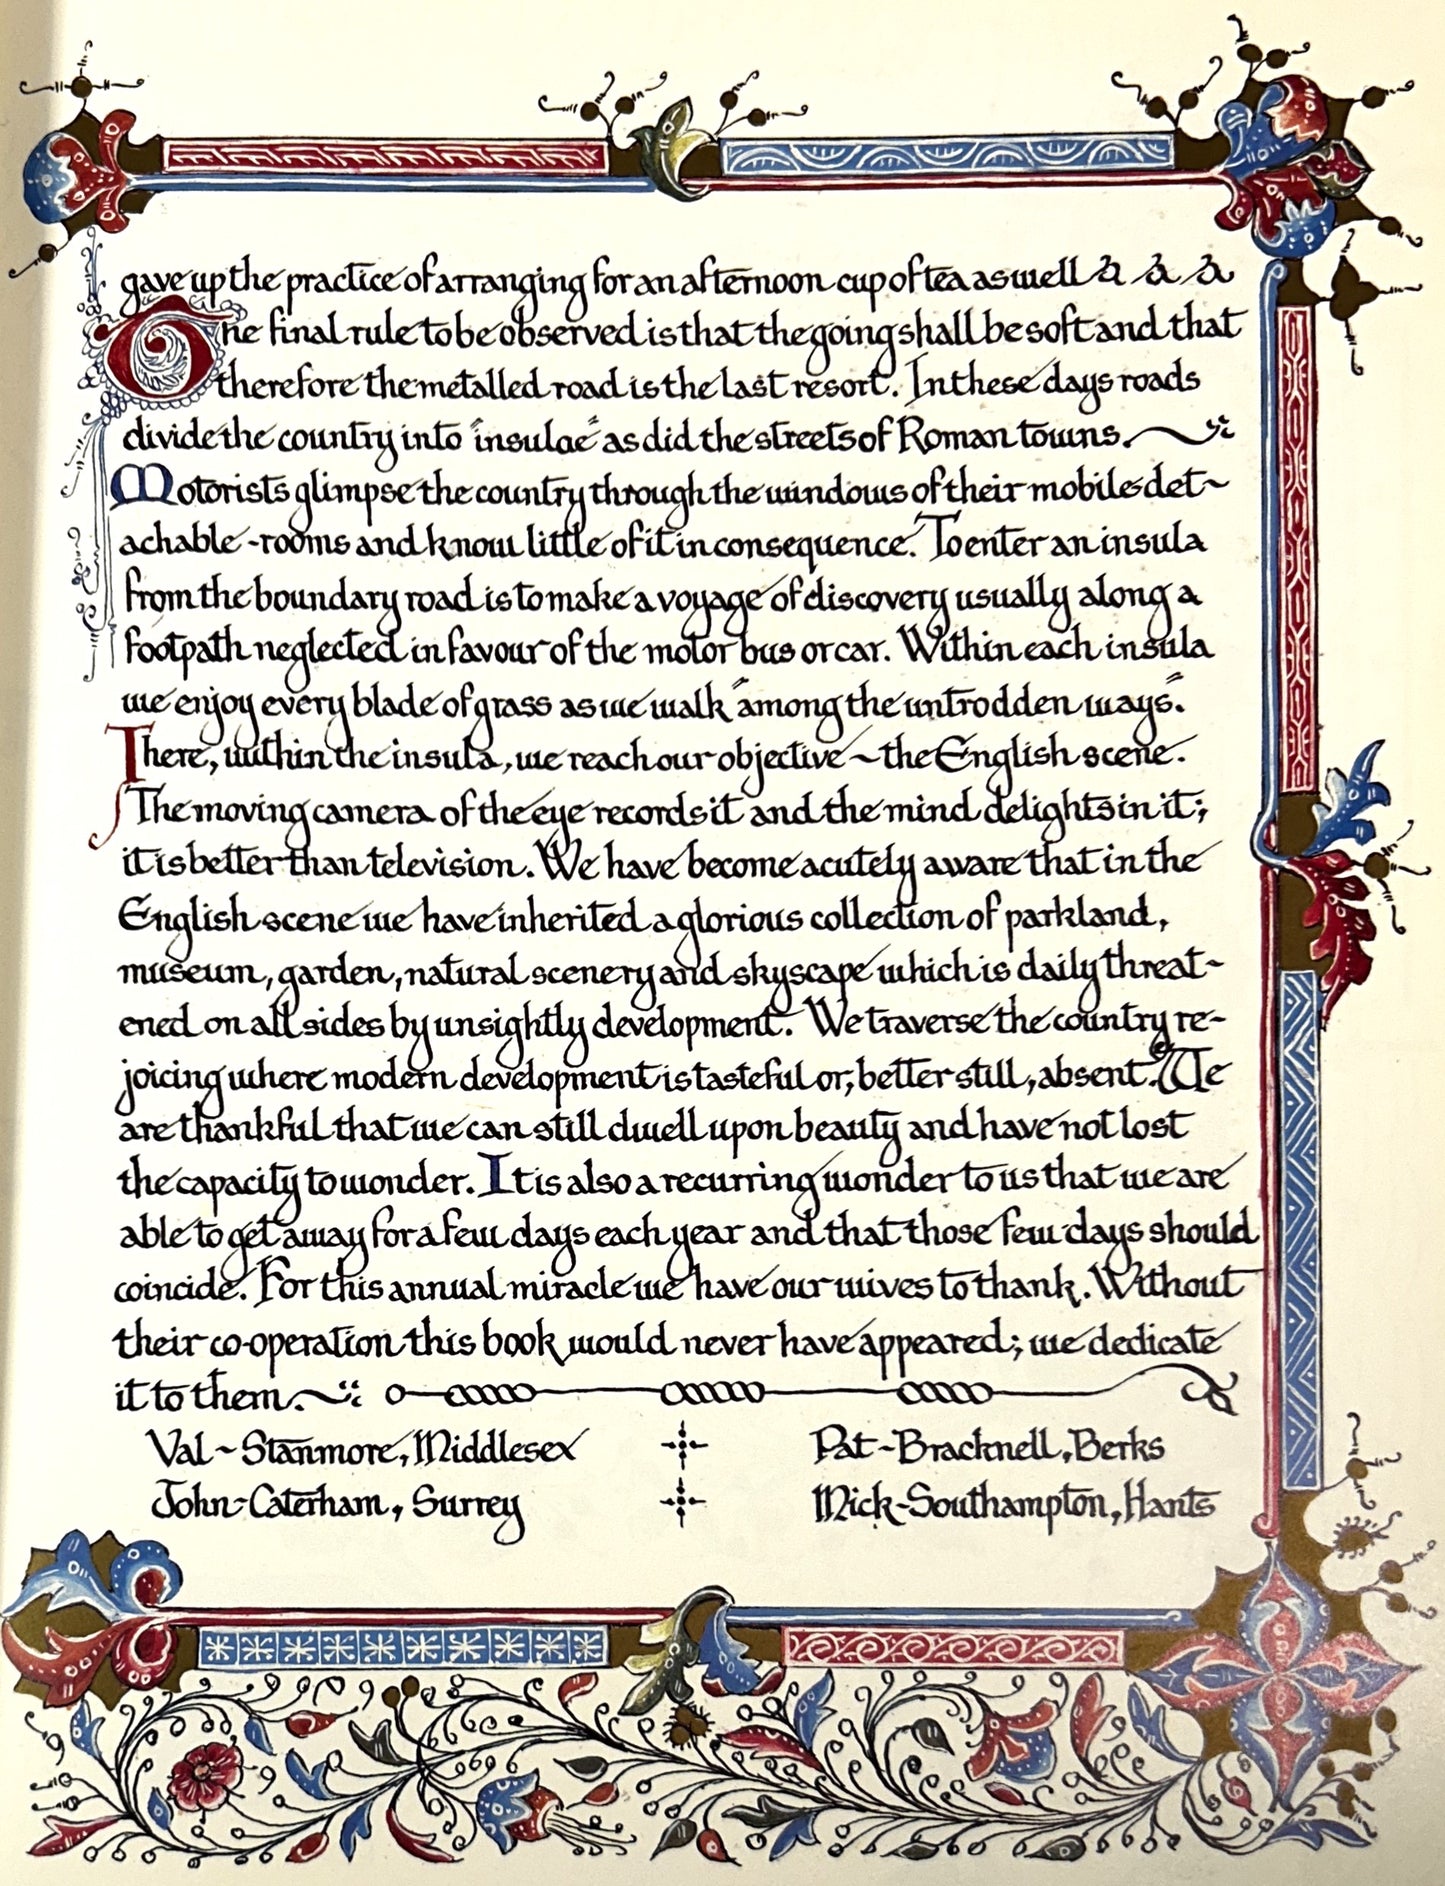 gave up the practice of arranging for an afternoon cup of tea as well
The final rule to be observed is that the going shall be soft and that
therefore the metalled road is the last resort. In these days roads
divide the country into "insulae" as did the streets of Roman towns.
Motorists glimpse the country through the windows of their mobile det~
achable-rooms and know little of it in consequence. To enter an insula
from the boundary road is to make a voyage of discovery usually along a
footpath neglected in favour of the motor bus or car. Within each insula
we enjoy every blade of grass as we walk "among the untrodden ways".
There, within the insula, we reach our objective ~ the English scene.
The moving camera of the eye records it and the mind delights in it;
it is better than television. We have become acutely aware that in the
English scene we have inherited a glorious collection of parkland,
museum, garden, natural scenery and skyscape which is daily threat~
ened on all sides by unsightly development. We traverse the country re~
joicing where modern development is tasteful or, better still, absent. We
are thankful that we can still dwell upon beauty and have not lost
the capacity to wonder. It is also a recurring wonder to us that we are
able to get away for a few days each year and that those few days should
coincide. For this annual miracle we have our wives to thank. Without
their co-operation this book would never have appeared; we dedicate
it to them.
Val ~ Stanmore, Middlesex Pat ~ Bracknell, Berks
John ~ Caterham, Surrey Mick ~ Southampton, Hants